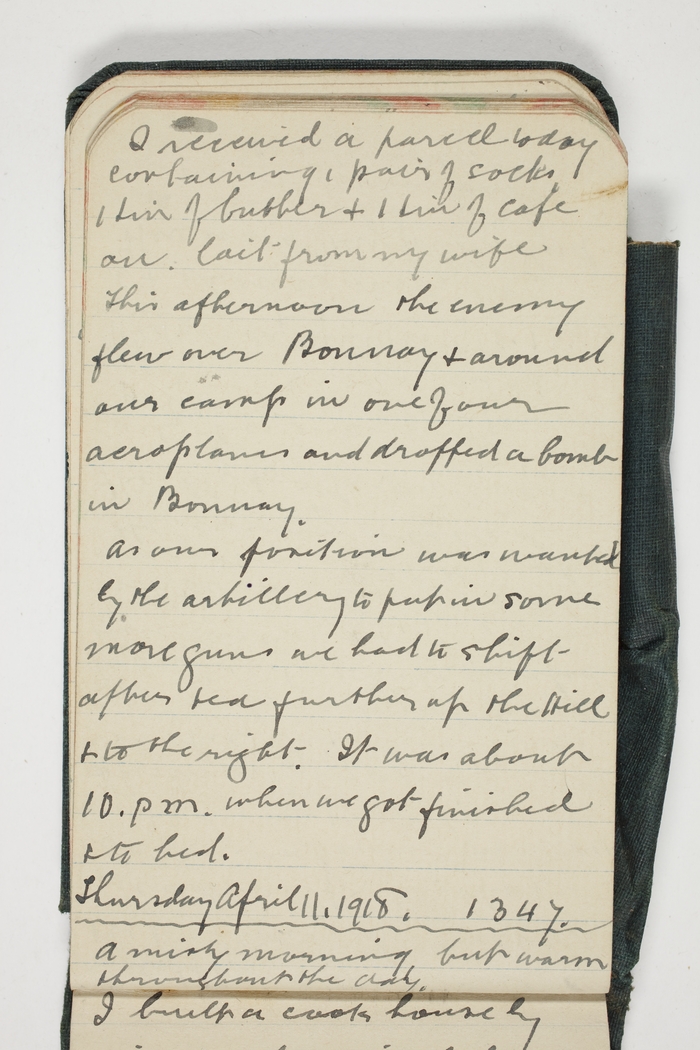 I received a parcel today
containing 1 pair of socks
1 tin of butter & 1 tin of cafe
au. lait from my wife
This afternoon the enemy
flew over Bonnay & around
our camp in one of our
aeroplanes and dropped a bomb
in Bonnay.
As our position was wanted
by the artillery to put in some
more guns we had to shift
after tea further up the Hill
& to the right. It was about
10. p.m. when we got finished
& to bed.
Thursday April 11. 1918. 1347.
A misty morning but warm
throughout the day.
I built a cook house by